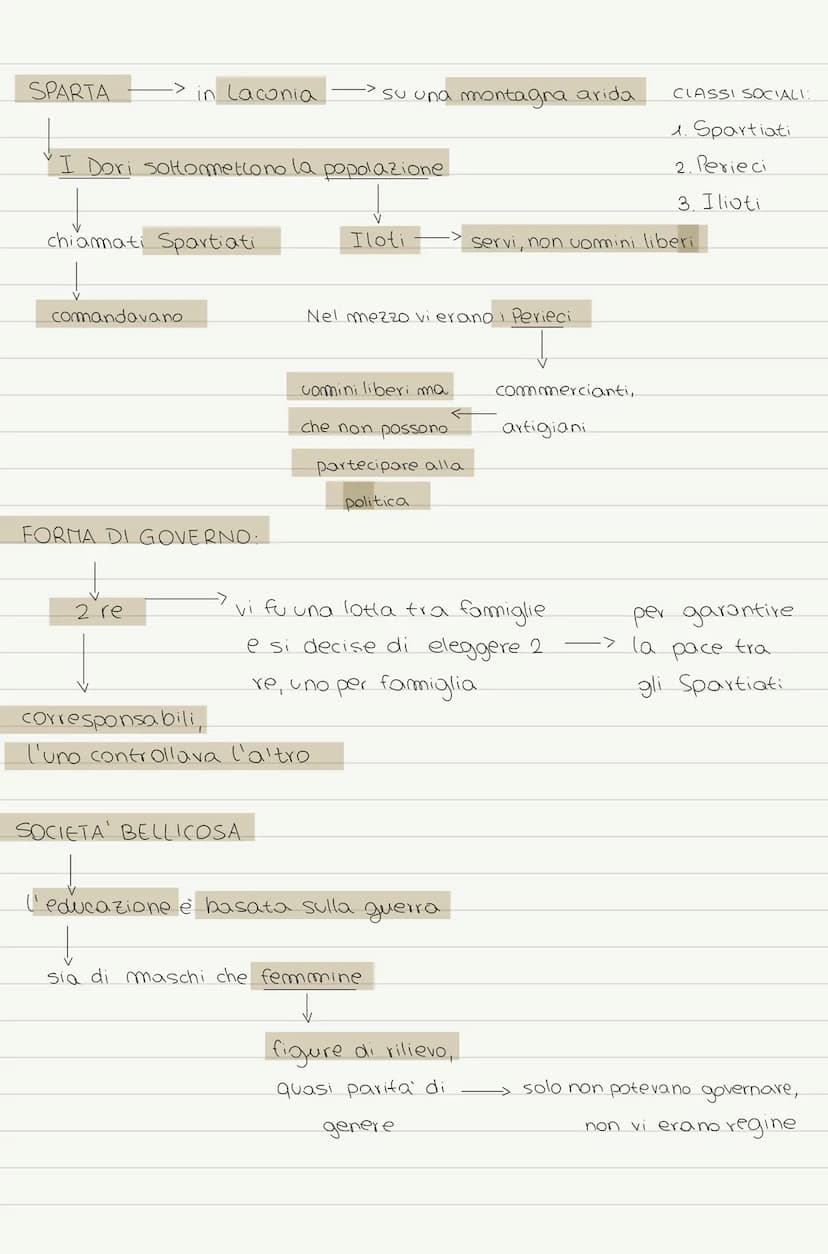 SPARTA → in Laconia → su una montagna arida
CLASSI SOCIALI:
1. Spartiati
2. Perieci
3. Ilioti
I Dori sottomettono la popolazione
chiamati Spartiati
Iloti → servi, non uomini liberi
comandavano
Nel mezzo vi erano i Perieci
commercianti,
artigiani
uomini liberi ma
che non possono
partecipare alla
politica
FORMA DI GOVERNO:
2 re
vi fu una lotta tra famiglie
e si decise di eleggere 2
re, uno per famiglia
per garantire
la pace tra
gli Spartiati
corresponsabili,
l'uno controllava l'altro
SOCIETA' BELLICOSA
l'educazione è basata sulla guerra
sia di maschi che femmine
figure di rilievo,
quasi parità di
genere
solo non potevano governare,
non vi erano regine